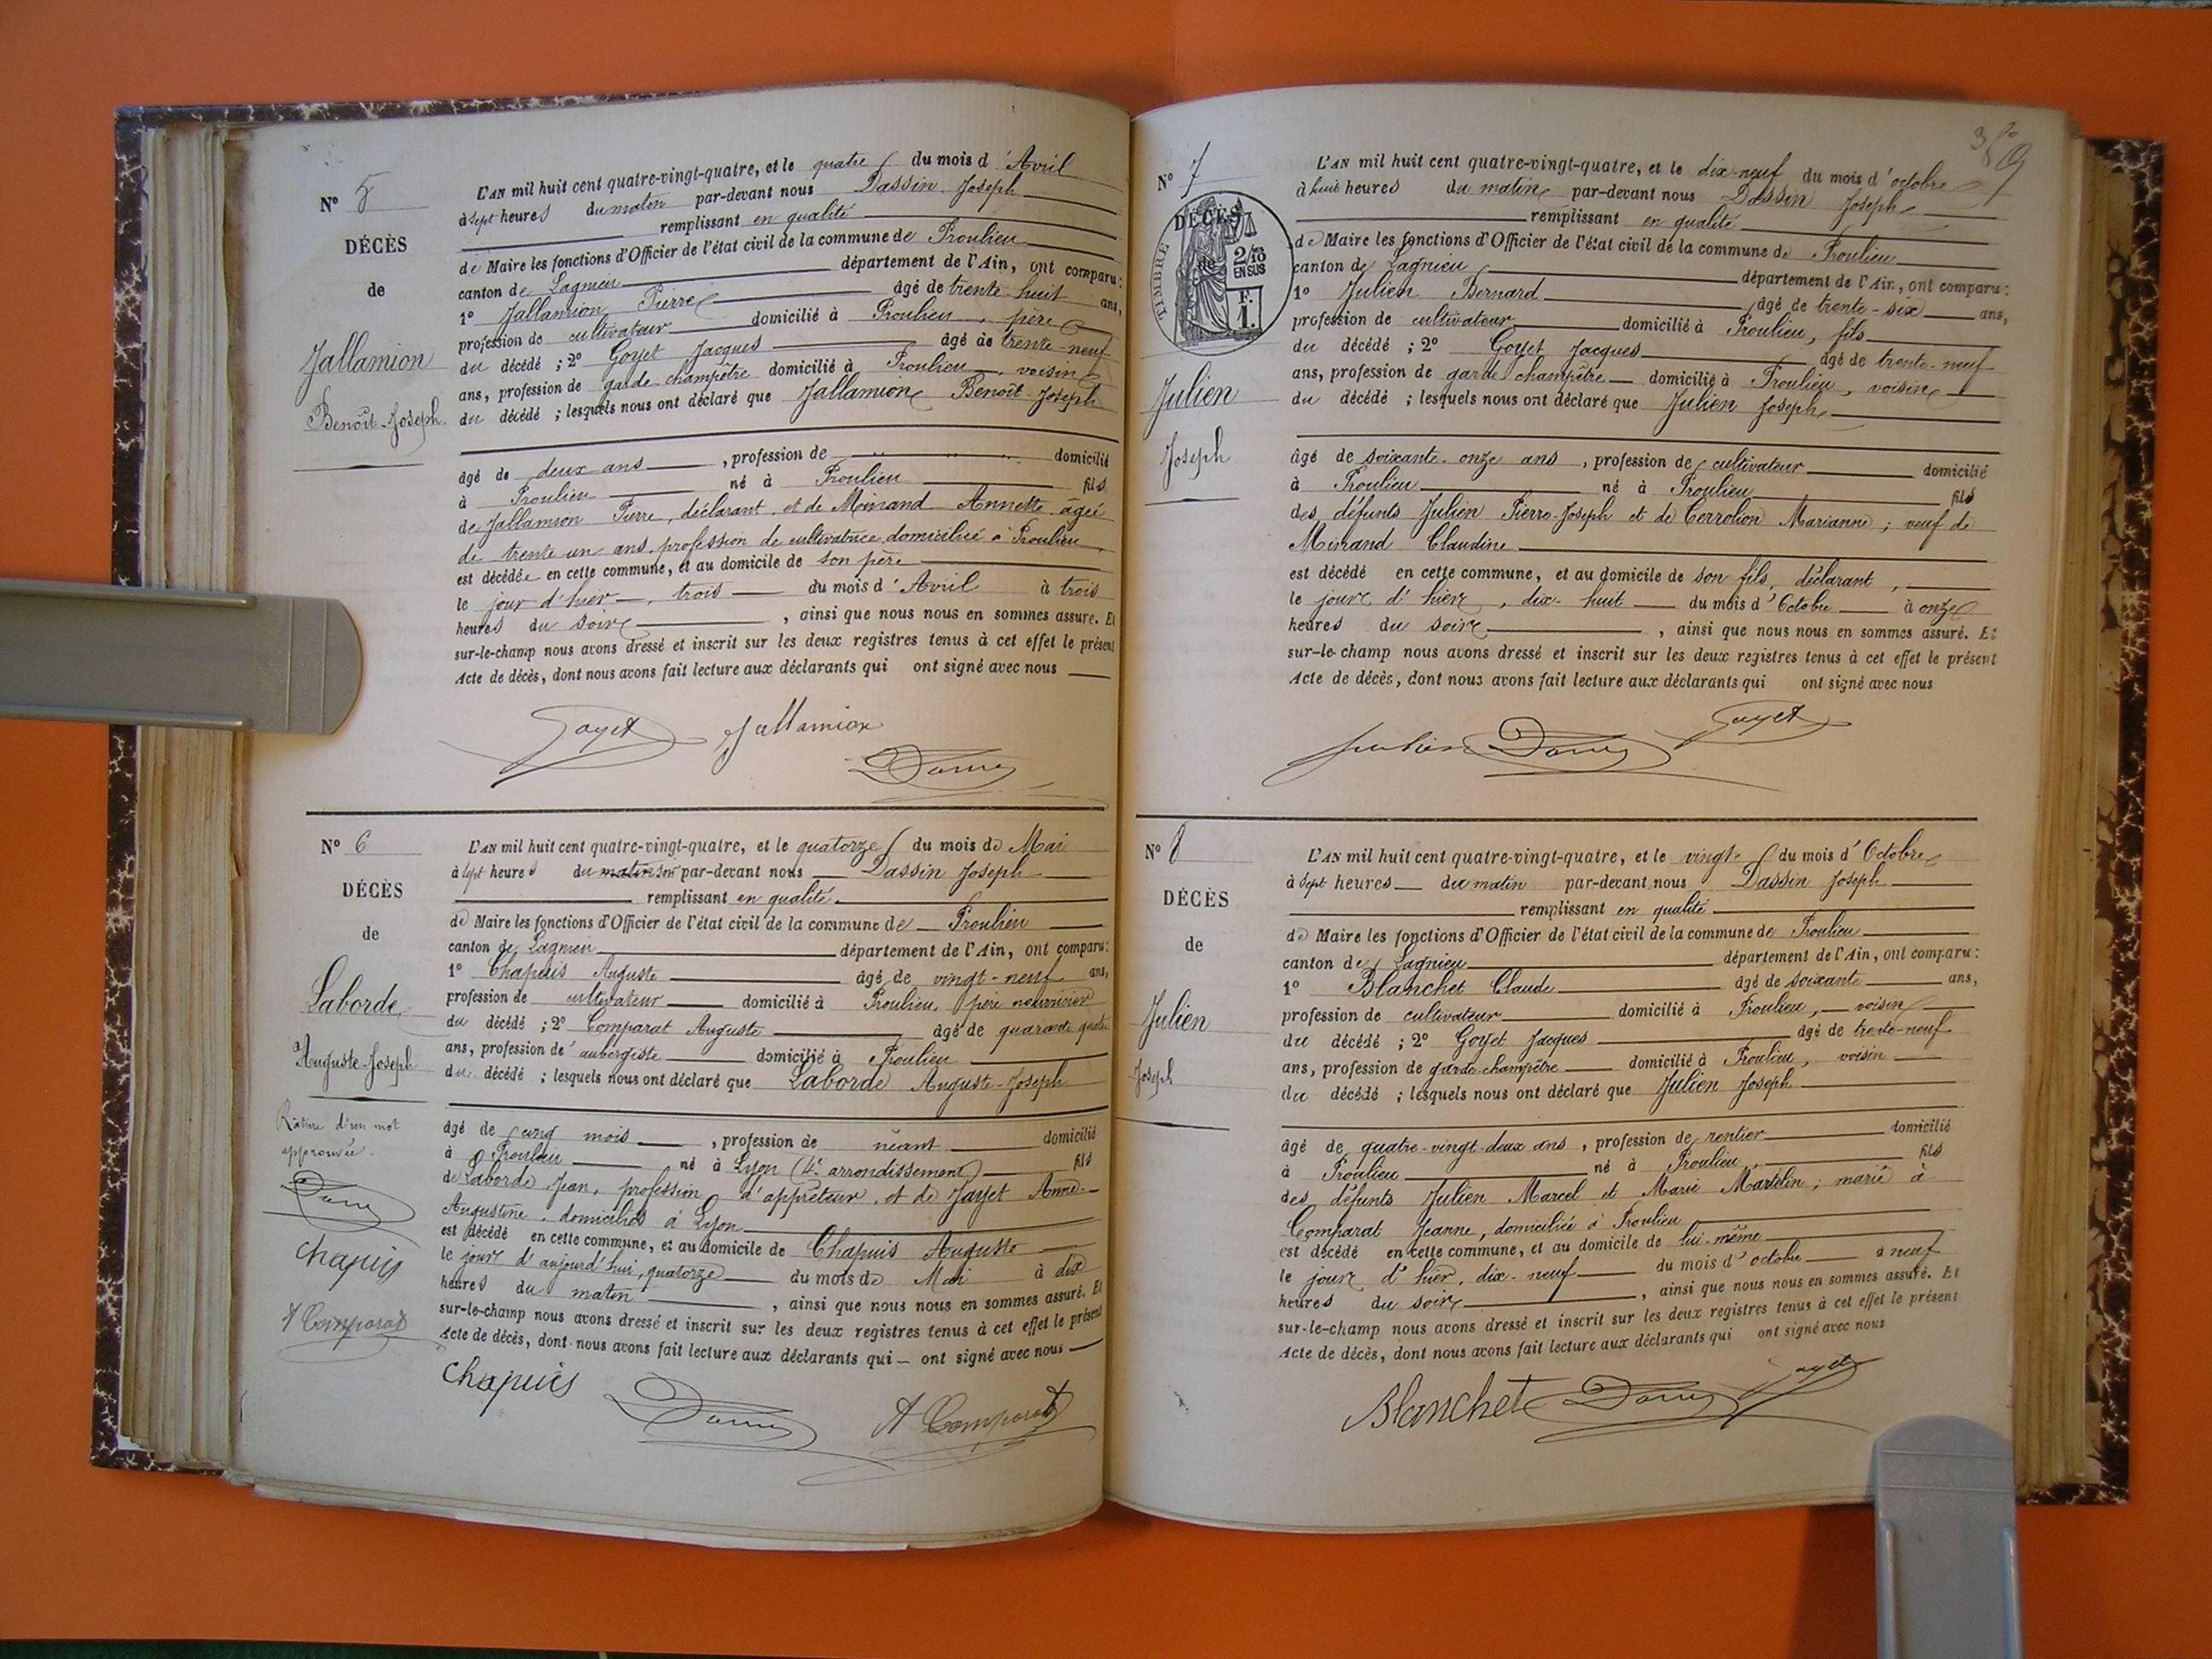 N° 5
DÉCÈS
de
Jallamion
Benoît-Joseph
L'AN mil huit cent quatre-vingt-quatre, et le quatre du mois d'Avril
à sept heures du matin par-devant nous Dassin Joseph
remplissant en qualité
de Maire les fonctions d'Officier de l'état civil de la commune de Proulieu
canton de Lagnieu département de l'Ain, ont comparu:
1° Jallamion Pierre âgé de trente-huit ans,
profession de cultivateur domicilié à Proulieu, père
du décédé; 2° Goyet Jacques âgé de trente-neuf
ans, profession de garde champêtre domicilié à Proulieu, voisin
du décédé; lesquels nous ont déclaré que Jallamion Benoît-Joseph
âgé de deux ans, profession de domicilié
à Proulieu né à Proulieu fils
de Jallamion Pierre, déclarant, et de Minand Annette âgée
de trente un ans, profession de cultivatrice domiciliée à Proulieu
est décédée en cette commune, et au domicile de son père
le jour d'hier, trois du mois d'Avril à trois
heures du soir, ainsi que nous nous en sommes assuré. Et
sur-le-champ nous avons dressé et inscrit sur les deux registres tenus à cet effet le présent
Acte de décès, dont nous avons fait lecture aux déclarants qui ont signé avec nous
Goyet Jallamion
N° 6
DÉCÈS
de
Laborde
Auguste-Joseph
Rature d'un mot
approuvée.
Chapuis
A Comparat
L'AN mil huit cent quatre-vingt-quatre, et le quatorze du mois de Mai
à sept heures du matin soir par-devant nous Dassin Joseph
remplissant en qualité
de Maire les fonctions d'Officier de l'état civil de la commune de Proulieu
canton de Lagnieu département de l'Ain, ont comparu:
1° Chapuis Auguste âgé de vingt-neuf ans,
profession de cultivateur domicilié à Proulieu, père nourricier
du décédé; 2° Comparat Auguste âgé de quarante quatre
ans, profession d'aubergiste domicilié à Proulieu
du décédé; lesquels nous ont déclaré que Laborde Auguste-Joseph
âgé de cinq mois, profession de néant domicilié
à Proulieu né à Lyon (4e arrondissement) fils
de Laborde Jean, profession d'apprêteur, et de Jayet Anne-
Augustine, domiciliés à Lyon
est décédé en cette commune, et au domicile de Chapuis Auguste
le jour d'aujourd'hui, quatorze du mois de Mai à dix
heures du matin, ainsi que nous nous en sommes assuré. Et
sur-le-champ nous avons dressé et inscrit sur les deux registres tenus à cet effet le présent
Acte de décès, dont nous avons fait lecture aux déclarants qui ont signé avec nous
Chapuis A Comparat
N° 7
DÉCÈS
de
TIMBRE
2/10
EN SUS
F.
1.
Julien
Joseph
L'AN mil huit cent quatre-vingt-quatre, et le dix-neuf du mois d'octobre
à huit heures du matin par-devant nous Dassin Joseph
remplissant en qualité
de Maire les fonctions d'Officier de l'état civil de la commune de Proulieu
canton de Lagnieu département de l'Ain, ont comparu:
1° Julien Bernard âgé de trente-six ans,
profession de cultivateur domicilié à Proulieu, fils
du décédé; 2° Goyet Jacques âgé de trente-neuf
ans, profession de garde champêtre domicilié à Proulieu, voisin
du décédé; lesquels nous ont déclaré que Julien Joseph
âgé de soixante-onze ans, profession de cultivateur domicilié
à Proulieu né à Proulieu fils
des défunts Julien Pierre-Joseph et de Marianne; veuf de
Minand Claudine
est décédé en cette commune, et au domicile de son fils, déclarant,
le jour d'hier, dix-huit du mois d'Octobre à onze
heures du soir, ainsi que nous nous en sommes assuré. Et
sur-le-champ nous avons dressé et inscrit sur les deux registres tenus à cet effet le présent
Acte de décès, dont nous avons fait lecture aux déclarants qui ont signé avec nous
Julien Goyet
N° 8
DÉCÈS
de
Julien
Joseph
L'AN mil huit cent quatre-vingt-quatre, et le vingt du mois d'Octobre
à sept heures du matin par-devant nous Dassin Joseph
remplissant en qualité
de Maire les fonctions d'Officier de l'état civil de la commune de Proulieu
canton de Lagnieu département de l'Ain, ont comparu:
1° Blanchet Claude âgé de soixante ans,
profession de cultivateur domicilié à Proulieu, voisin
du décédé; 2° Goyet Jacques âgé de trente-neuf
ans, profession de garde-champêtre domicilié à Proulieu, voisin
du décédé; lesquels nous ont déclaré que Julien Joseph
âgé de quatre-vingt-deux ans, profession de rentier domicilié
à Proulieu né à Proulieu, fils
des défunts Julien Marcel et Marie Martelin; marié à
Comparat Jeanne, domiciliée à Proulieu
est décédé en cette commune, et au domicile de lui-même
le jour d'hier, dix-neuf du mois d'octobre à neuf
heures du soir, ainsi que nous nous en sommes assuré. Et
sur-le-champ nous avons dressé et inscrit sur les deux registres tenus à cet effet le présent
Acte de décès, dont nous avons fait lecture aux déclarants qui ont signé avec nous
Blanchet Goyet